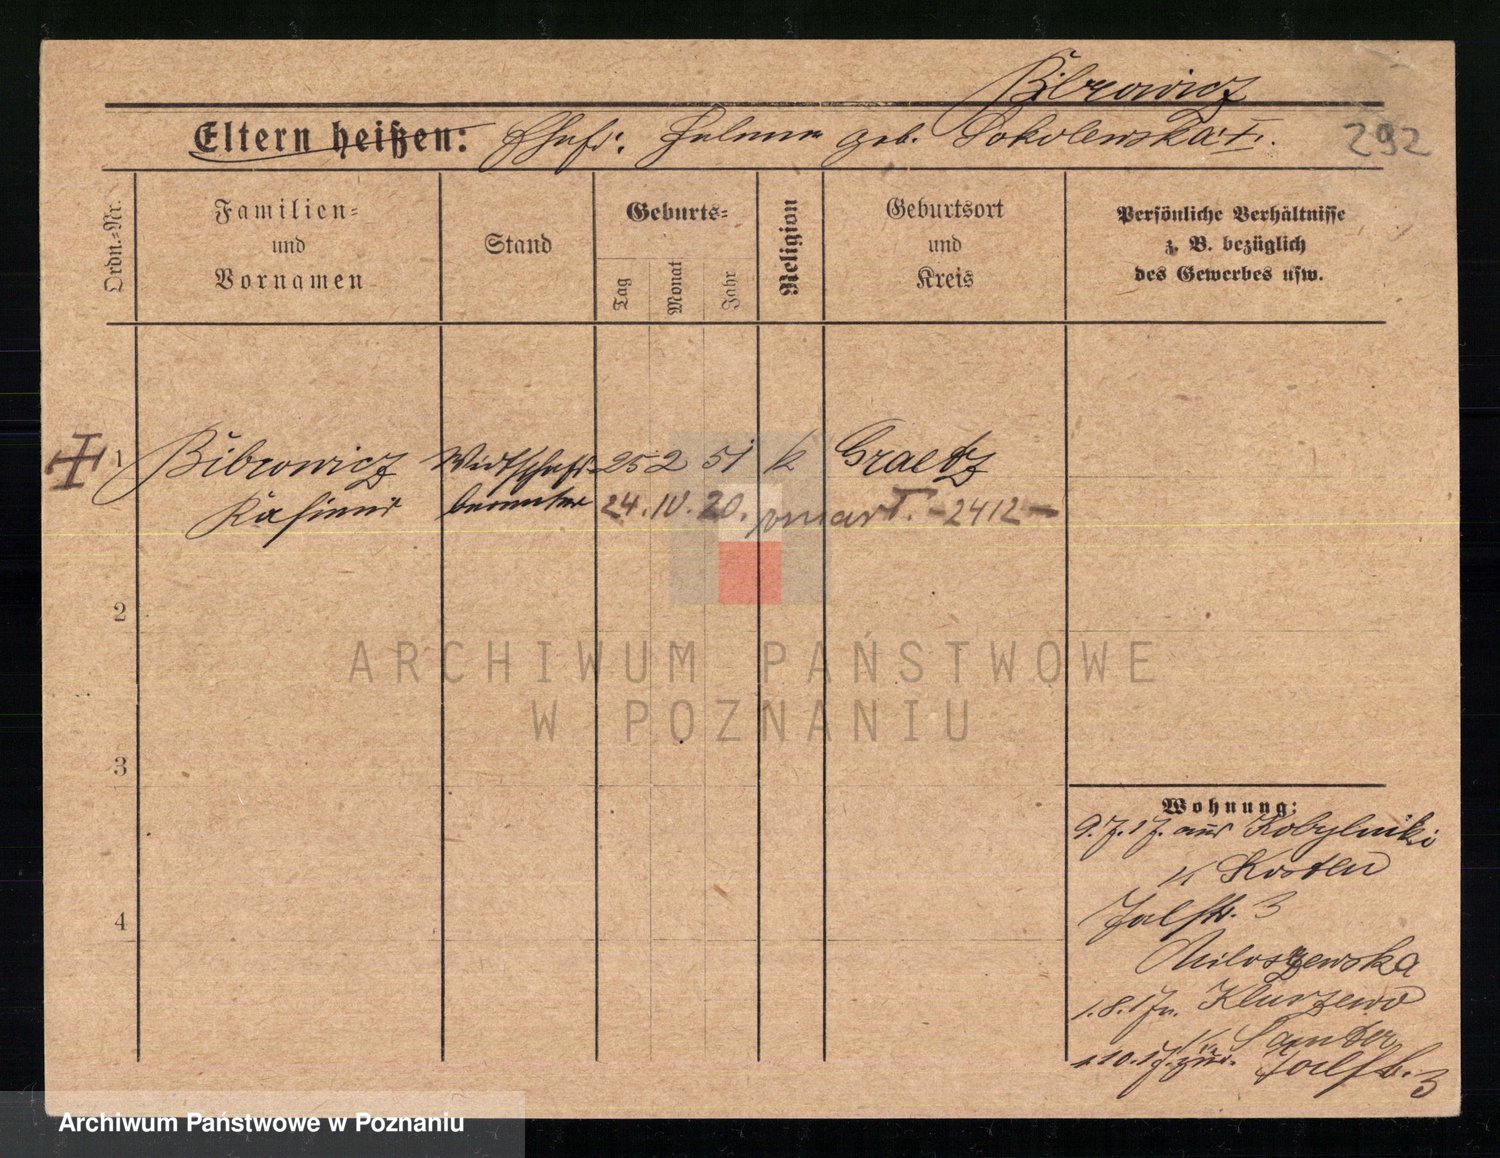 Bibrowicz
Eltern heißen: Ehefr. Helena geb. Sokolewska †.
292
Ordn.-Nr.
Familien-
und
Vornamen
Stand
Geburts-
Tag
Monat
Jahr
Religion
Geburtsort
und
Kreis
Persönliche Verhältnisse
z. B. bezüglich
des Gewerbes usw.
1 Bibrowicz Wirtschafts- 25 2 51 k Graetz
Kasimir beamter 24. IV. 20. zmarł. - 2412 -
2
3
4
ARCHIWUM PAŃSTWOWE
W POZNANIU
Wohnung:
9.7.17. aus Kobylniki
K Kosten
Halbst. 3
Miloszewska
1.8.17 n. Kluczewo
K Samter
1.10.17. zur. Halbst. 3
Archiwum Państwowe w Poznaniu